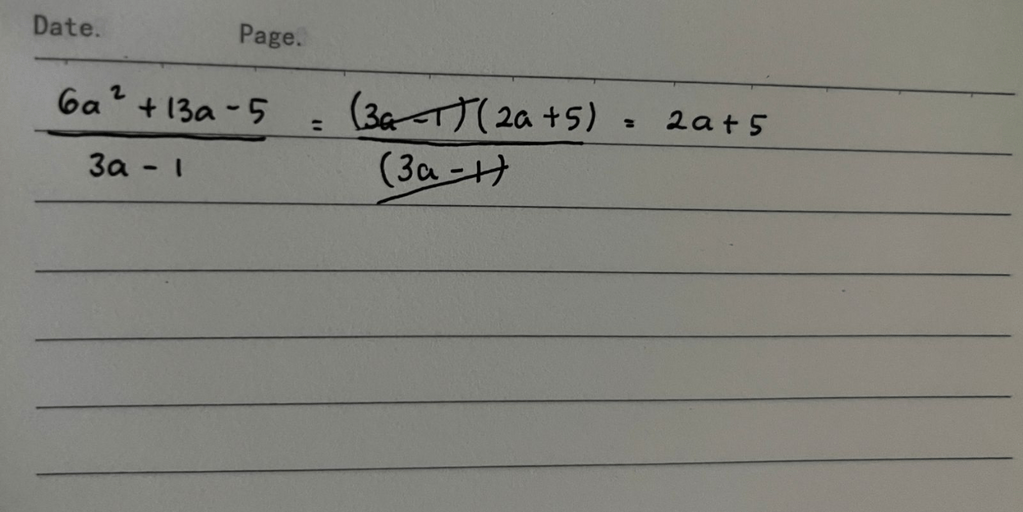 Date. Page.
6a² + 13a - 5 / 3a - 1 = (3a - 1)(2a + 5) / (3a - 1) = 2a + 5